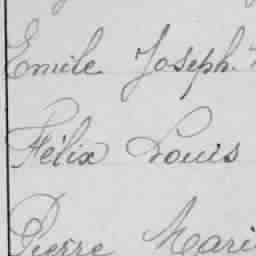 Emile Joseph
Félix Louis
Pierre Mari